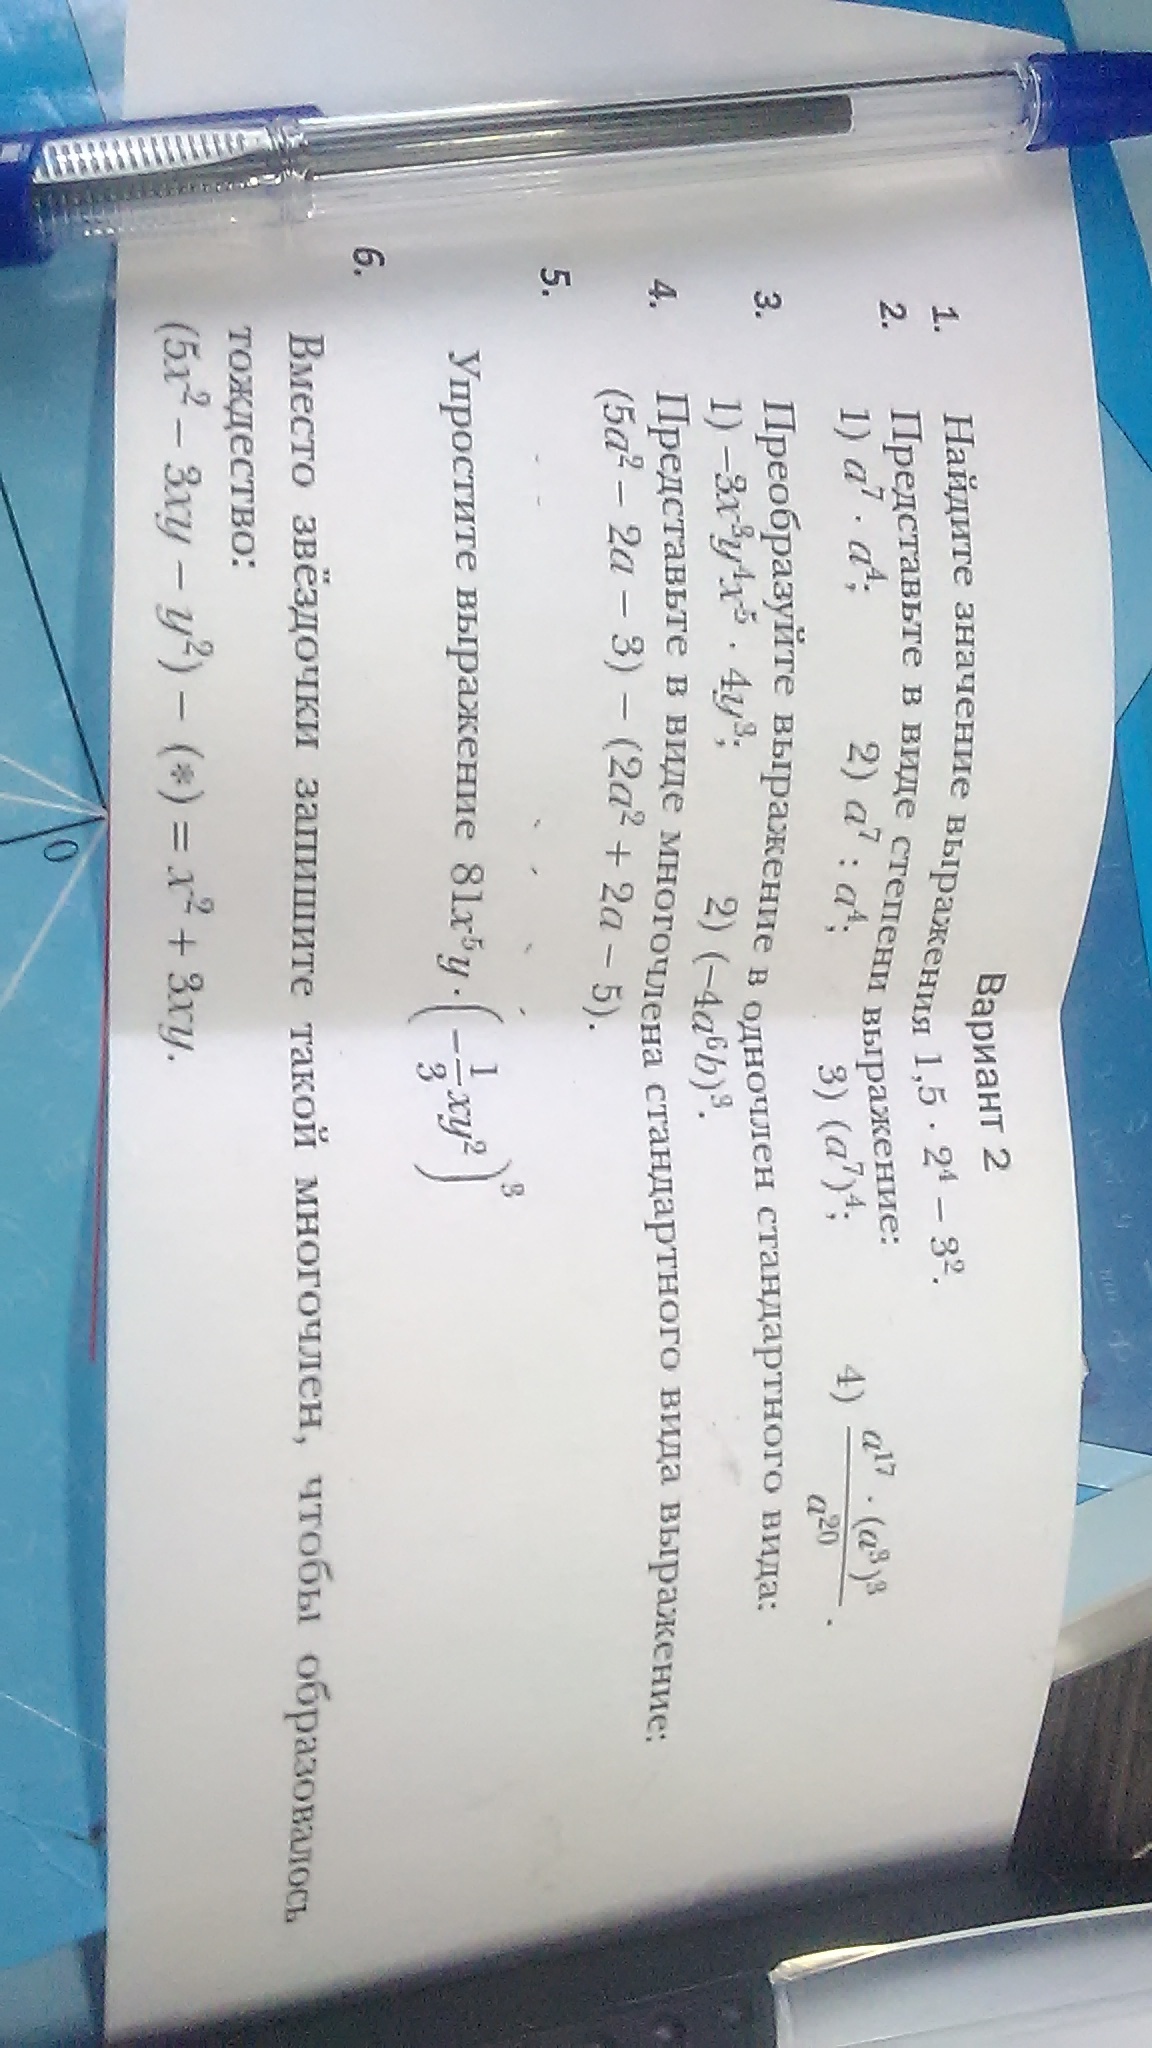 Вариант 2
1. Найдите значение выражения 1,5 · 2⁴ – 3².
2. Представьте в виде степени выражение:
1) a⁷ · a⁴; 2) a⁷ : a⁴; 3) (a⁷)⁴; 4) (a¹⁷ · (a³)³)/a²⁰.
3. Преобразуйте выражение в одночлен стандартного вида:
1) –3x³y⁴x⁵ · 4y³; 2) (–4a⁶b)³.
4. Представьте в виде многочлена стандартного вида выражение:
(5a² – 2a – 3) – (2a² + 2a – 5).
5.
Упростите выражение 81x⁵y · (–1/3 xy²)³
6.
Вместо звёздочки запишите такой многочлен, чтобы образовалось
тождество:
(5x² – 3xy – y²) – (*) = x² + 3xy.
0